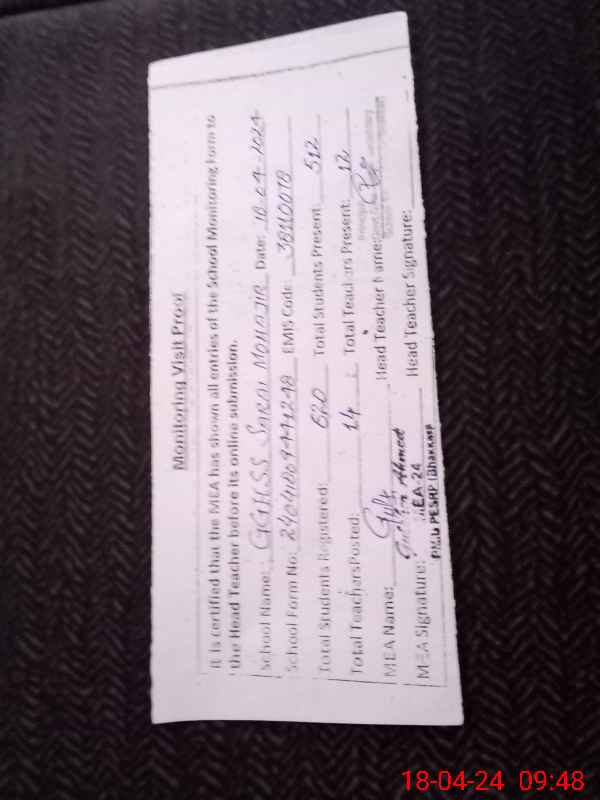 Monitoring Visit Proof
It is certified that the MEA has shown all entries of the School Monitoring Form to
the Head Teacher before its online submission.
School Name: GGHSS SARAI MOHAJIR Date: 18-04-2024
School Form No: EMIS Code: 38110078
Total Students Registered: 620 Total Students Present: 512
Total Teachers Posted: 14 Total Teachers Present: 12
MEA Name: Head Teacher Name:
Ahmed
MEA Signature: MEA-24 Head Teacher Signature:
PMIU PESRP (Bhakkar)
18-04-24 09:48